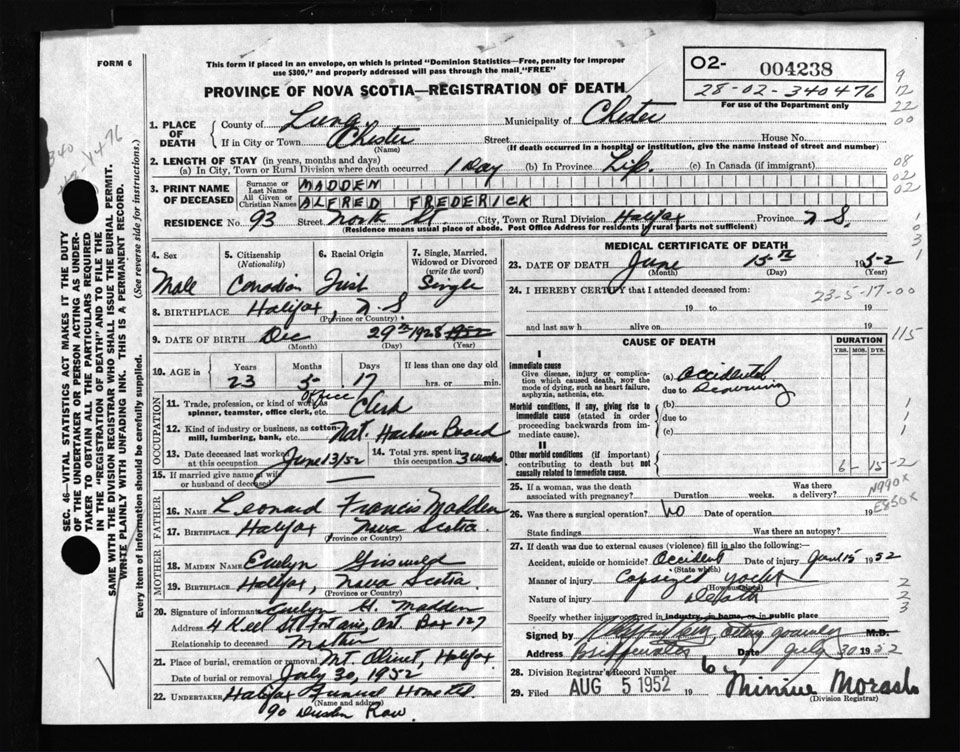 FORM 6
This form if placed in an envelope, on which is printed "Dominion Statistics—Free, penalty for improper
use $300," and properly addressed will pass through the mail "FREE"
PROVINCE OF NOVA SCOTIA—REGISTRATION OF DEATH
02- 004238
28-02-340476
For use of the Department only
9
12
22
00
1. PLACE OF DEATH
County of Lung Municipality of Chester
If in City or Town Chester Street House No.
(Name) (If death occurred in a hospital or institution, give the name instead of street and number)
2. LENGTH OF STAY (in years, months and days)
(a) In City, Town or Rural Division where death occurred 1 Day (b) In Province Life (c) In Canada (if immigrant)
08
02
02
3. PRINT NAME OF DECEASED
Surname or Last Name MADDEN
All Given or Christian Names ALFRED FREDERICK
RESIDENCE No. 93 Street North St. City, Town or Rural Division Halifax Province N S.
(Residence means usual place of abode. Post Office Address for residents in rural parts not sufficient)
4. Sex Male
5. Citizenship (Nationality) Canadian
6. Racial Origin Irish
7. Single, Married, Widowed or Divorced (write the word) Single
8. BIRTHPLACE Halifax, N S
(Province or Country)
9. DATE OF BIRTH Dec 29th 1928 1952
(Month) (Day) (Year)
10. AGE in Years Months Days If less than one day old
23 5 17 hrs. or min.
OCCUPATION
11. Trade, profession, or kind of work as spinner, teamster, office clerk, etc. office Clerk
12. Kind of industry or business, as cotton-mill, lumbering, bank, etc. Nat. Harbour Board
13. Date deceased last worked at this occupation June 13/52
14. Total yrs. spent in this occupation 3 weeks
15. If married give name of wife or husband of deceased
FATHER
16. NAME Leonard Francis Madden
17. BIRTHPLACE Halifax Nova Scotia.
(Province or Country)
MOTHER
18. MAIDEN NAME Evelyn Griswold
19. BIRTHPLACE Halifax, Nova Scotia
(Province or Country)
20. Signature of informant Evelyn G. Madden
Address 4 Ont. Box 127
Relationship to deceased Mother
21. Place of burial, cremation or removal Mt. Olivet, Halifax
Date of burial or removal July 30, 1952
22. UNDERTAKER Halifax Funeral Home Ltd.
(Name and address)
90 Row.
MEDICAL CERTIFICATE OF DEATH
23. DATE OF DEATH June 15th 1952
(Month) (Day) (Year)
24. I HEREBY CERTIFY that I attended deceased from:
23-5-17-00
19 to 19
and last saw h alive on 19
115
CAUSE OF DEATH
DURATION
YRS. MOS. DYS.
I
Immediate cause
Give disease, injury or complication which caused death, NOT the mode of dying, such as heart failure, asphyxia, asthenia, etc.
(a) Accidental
due to Drowning
Morbid conditions, if any, giving rise to immediate cause (stated in order proceeding backwards from immediate cause).
(b)
due to
(c)
II
Other morbid conditions (if important) contributing to death but not causally related to immediate cause.
6-15-2
25. If a woman, was the death associated with pregnancy? Duration weeks. Was there a delivery?
N990X
E850X
26. Was there a surgical operation? No Date of operation 19
State findings Was there an autopsy?
27. If death was due to external causes (violence) fill in also the following:—
Accident, suicide or homicide? Accident Date of injury June 15 1952
(State which)
Manner of injury Capsized yacht
(How sustained)
Nature of injury Death
Specify whether injury occurred in industry, in home, or in public place
2
2
3
Signed by M.D.
Address Bridgewater Date July 30 1952
28. Division Registrar's Record Number 6
29. Filed AUG 5 1952 19 Morash
(Division Registrar)
SEC. 46—VITAL STATISTICS ACT MAKES IT THE DUTY
OF THE UNDERTAKER OR PERSON ACTING AS UNDER-
TAKER TO OBTAIN ALL THE PARTICULARS REQUIRED
IN THE "REGISTRATION OF DEATH" AND TO FILE THE
SAME WITH THE DIVISION REGISTRAR WHO SHALL ISSUE THE BURIAL PERMIT.
WRITE PLAINLY WITH UNFADING INK. THIS IS A PERMANENT RECORD.
(See reverse side for instructions.)
Every item of information should be carefully supplied.